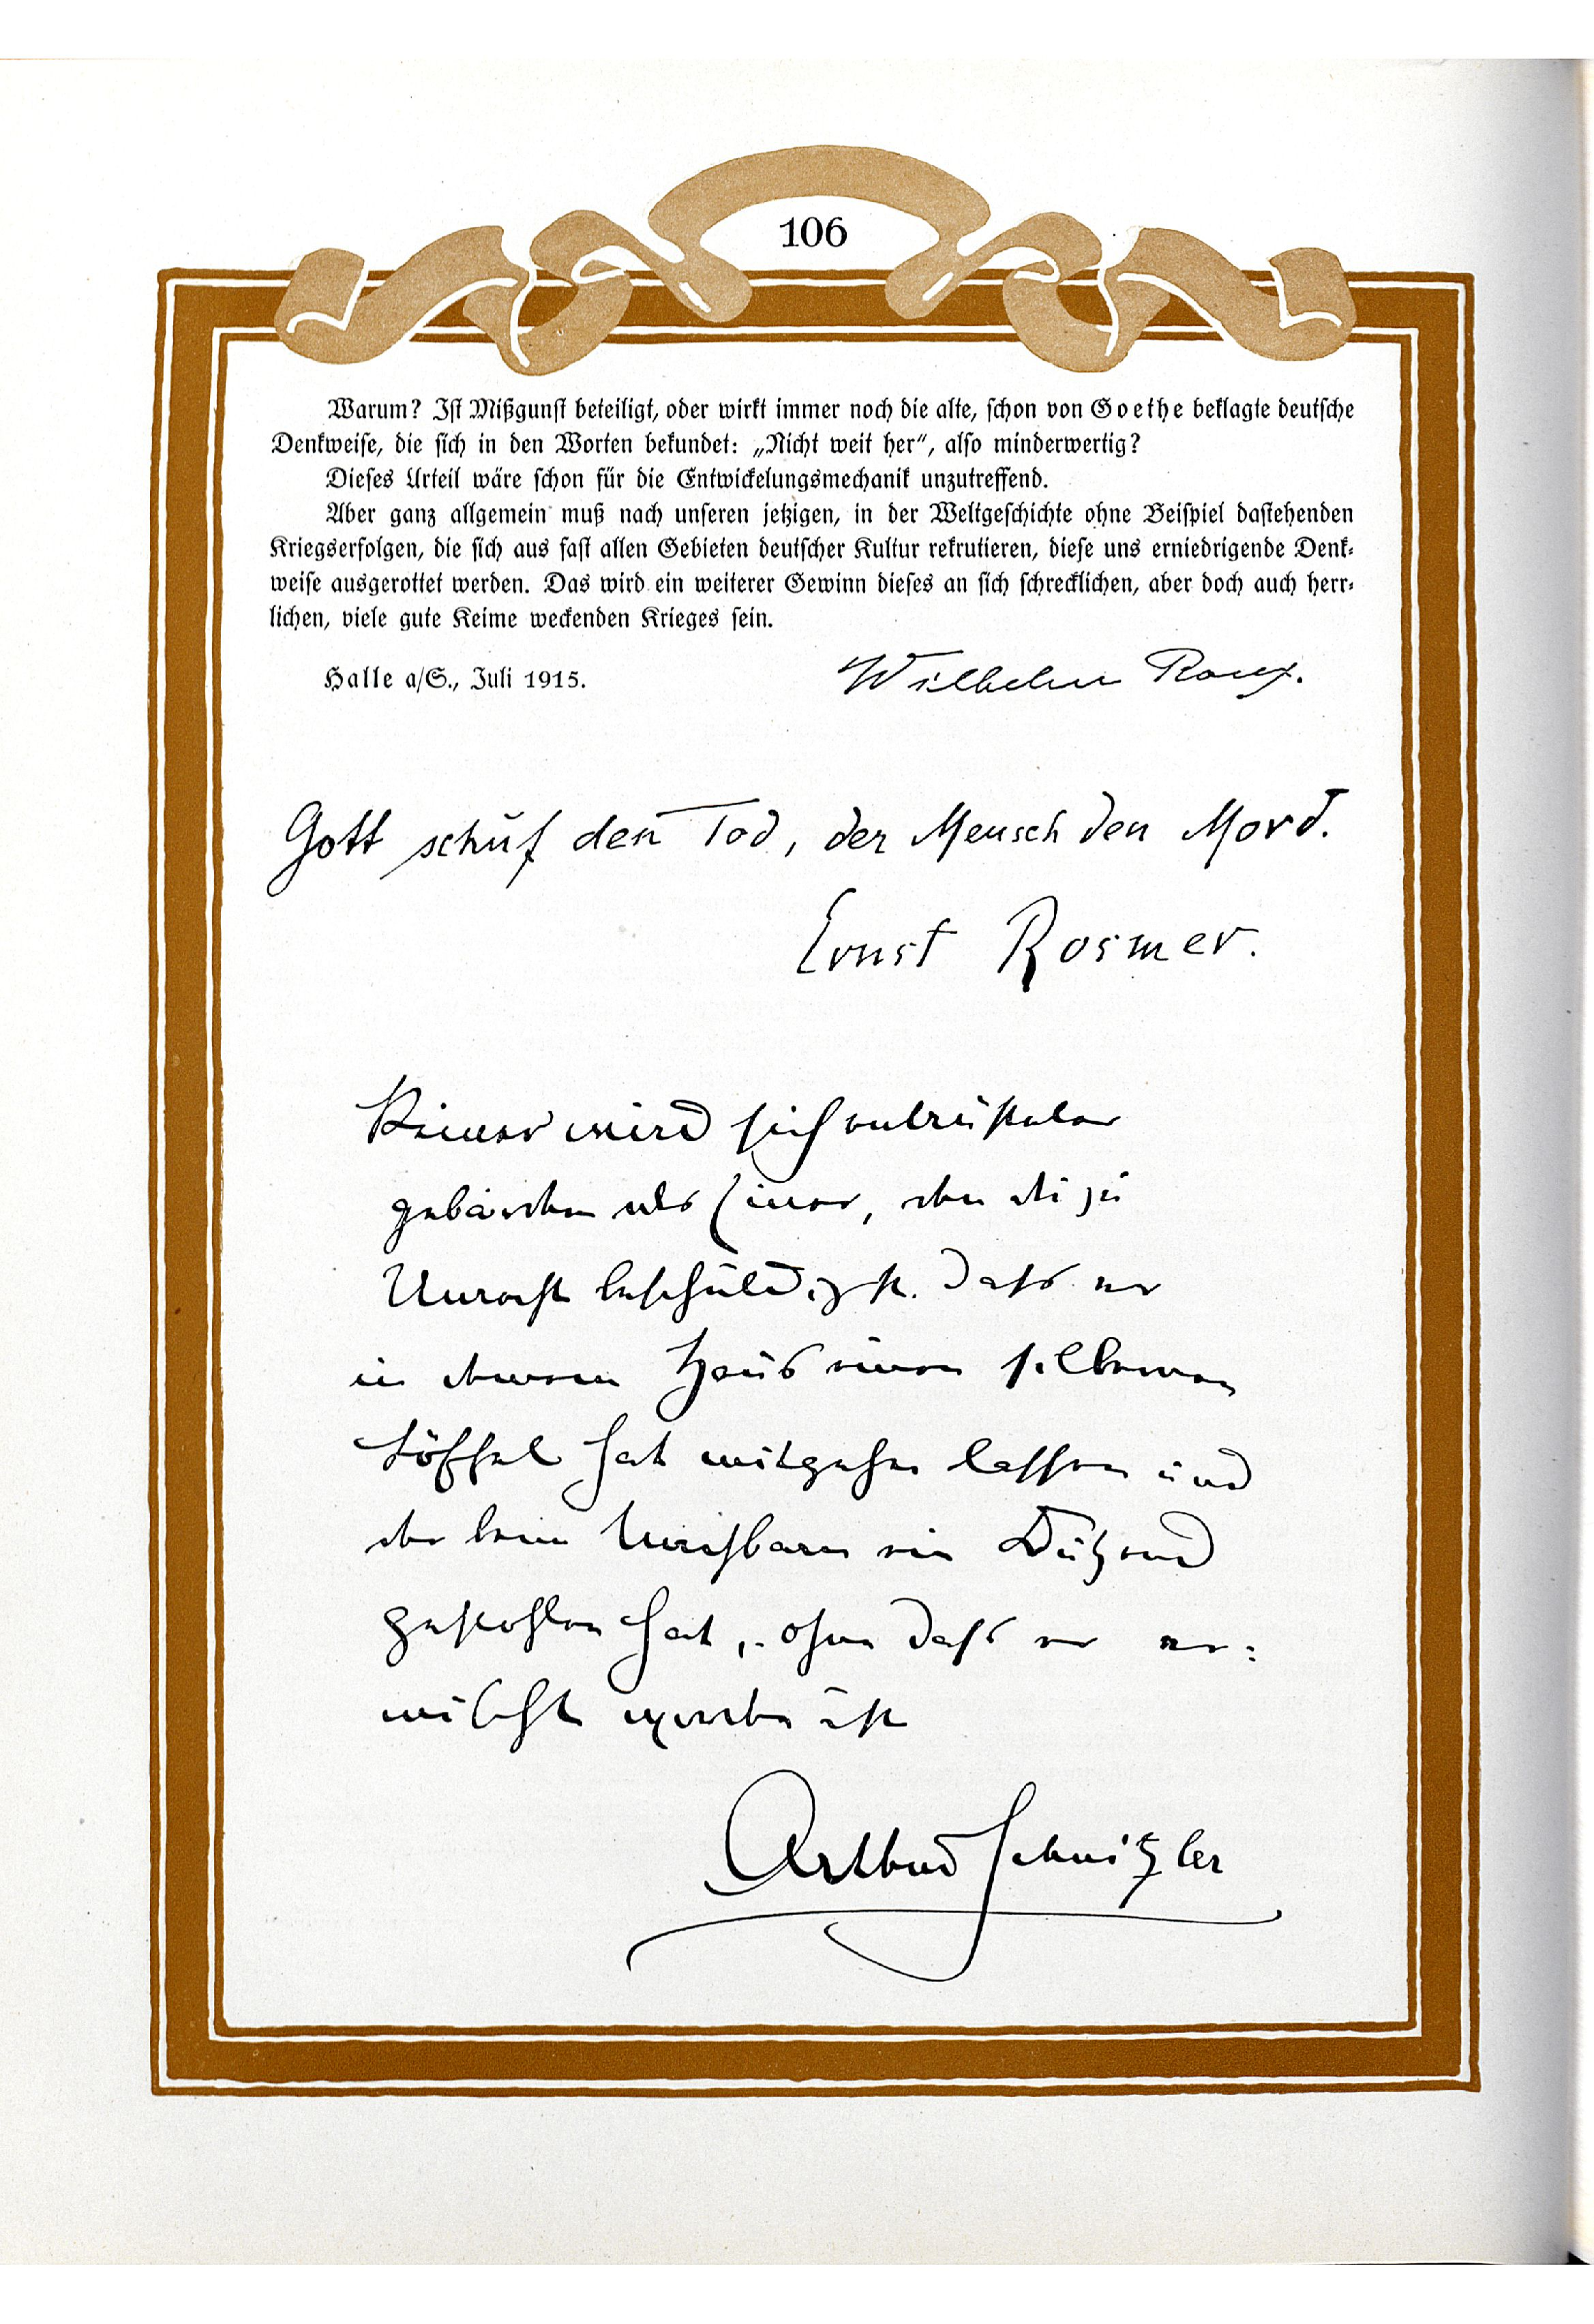 106
Warum? Ist Mißgunst beteiligt, oder wirkt immer noch die alte, schon von Goethe beklagte deutsche
Denkweise, die sich in den Worten bekundet: „Nicht weit her“, also minderwertig?
Dieses Urteil wäre schon für die Entwickelungsmechanik unzutreffend.
Aber ganz allgemein muß nach unseren jetzigen, in der Weltgeschichte ohne Beispiel dastehenden
Kriegserfolgen, die sich aus fast allen Gebieten deutscher Kultur rekrutieren, diese uns erniedrigende Denk-
weise ausgerottet werden. Das wird ein weiterer Gewinn dieses an sich schrecklichen, aber doch auch herr-
lichen, viele gute Keime weckenden Krieges sein.
Halle a/S., Juli 1915.
Wilhelm Roux.
Gott schuf den Tod, der Mensch den Mord.
Ernst Rosmer.
Keiner wird sich entrüsteter
gebärden als Einer, den du zu
Unrecht beschuldigst. dass er
in deinem Haus einen silbernen
Löffel hat mitgehen lassen und
der beim Nachbarn ein Dutzend
gestohlen hat, ohne dass er er-
wischt worden ist
Arthur Schnitzler